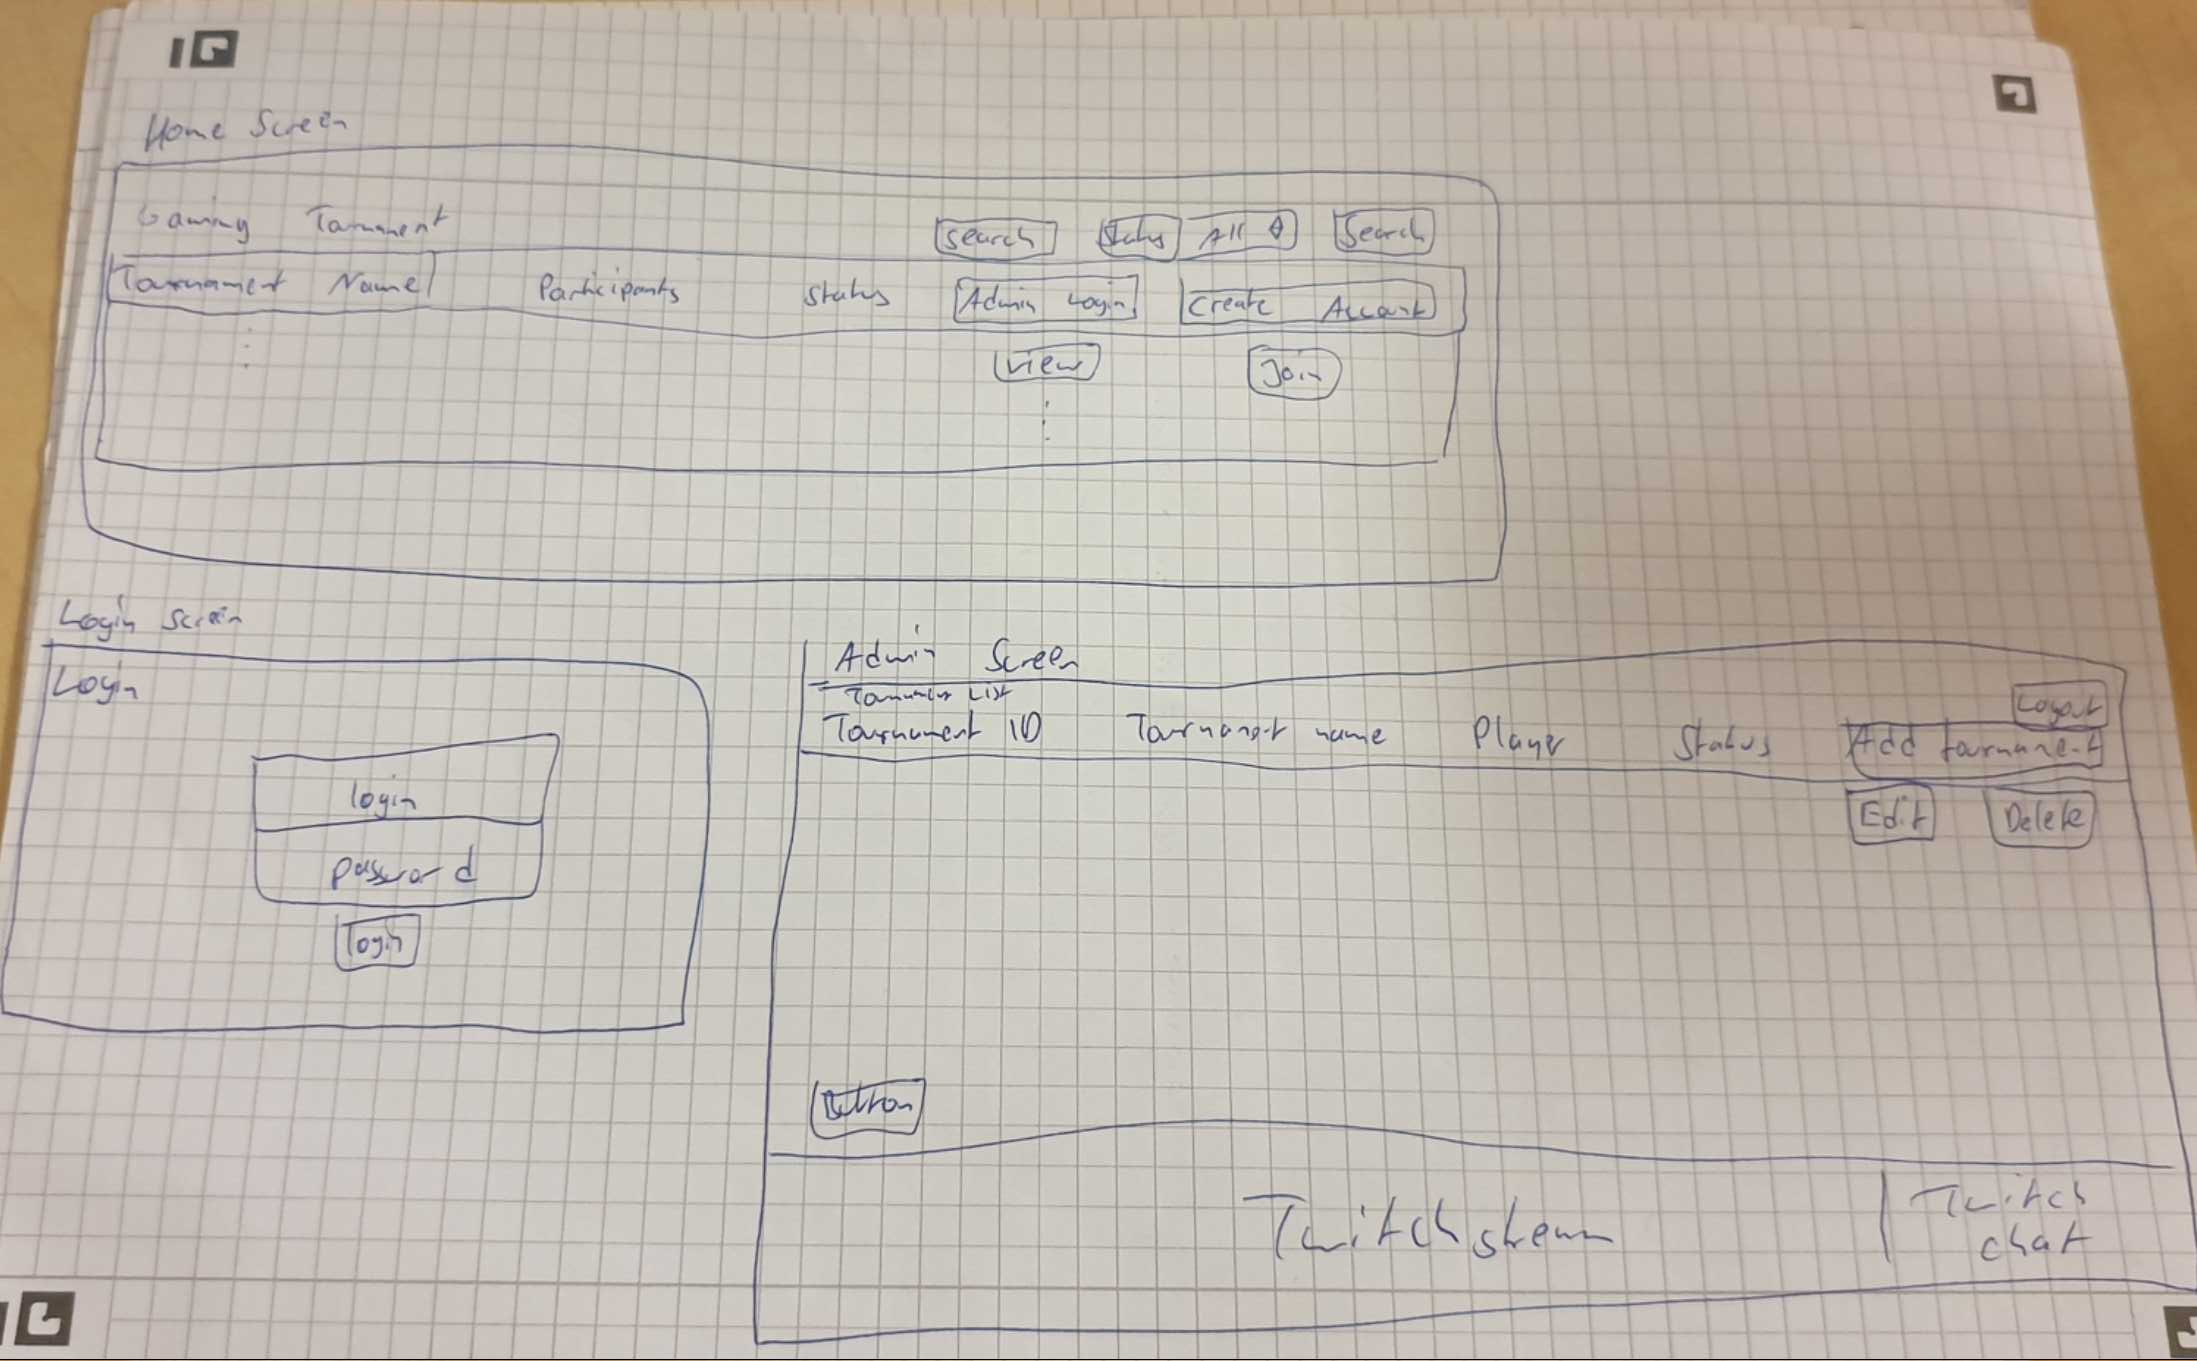 Home Screen
Gaming Tournament
search Status All Search
Tournament Name Participants Status Admin Login Create Account
view Join
Login Screen
Login
login
password
login
Admin Screen
List
Tournament ID Tournament name Player Status
Logout
Add tournament
Edit Delete
Button
Twitch stream
Twitch
chat